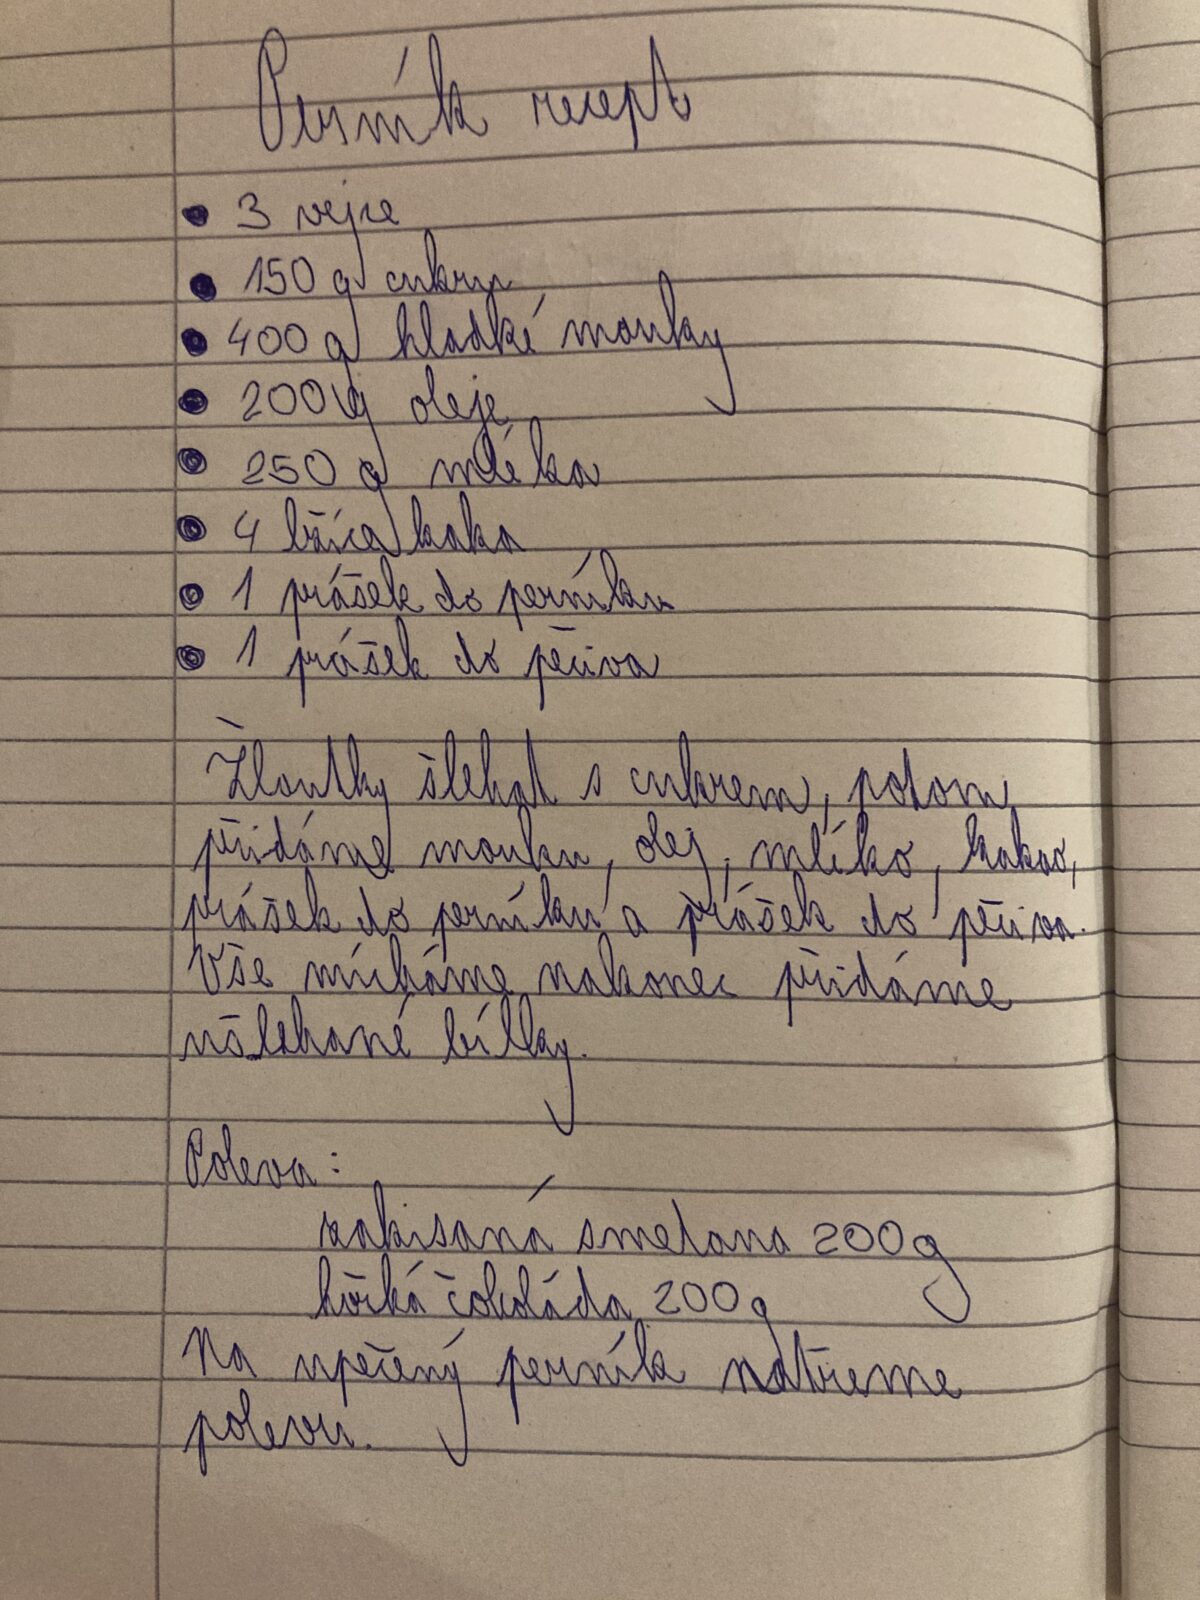 Perník recept
• 3 vejce
• 150 g cukru
• 400 g hladké mouky
• 200 g oleje
• 250 g mléka
• 4 lžíce kaka
• 1 prášek do perníku
• 1 prášek do pečiva
Žloutky šlehat s cukrem, potom
přidáme mouku, olej, mlíko, kakao,
prášek do perníku a prášek do pečiva.
Vše mícháme nakonec přidáme
ušlehané bílky.
Poleva:
zakisaná smetana 200g
hořká čokoláda 200g
Na upečený perník natřeme
polevu.